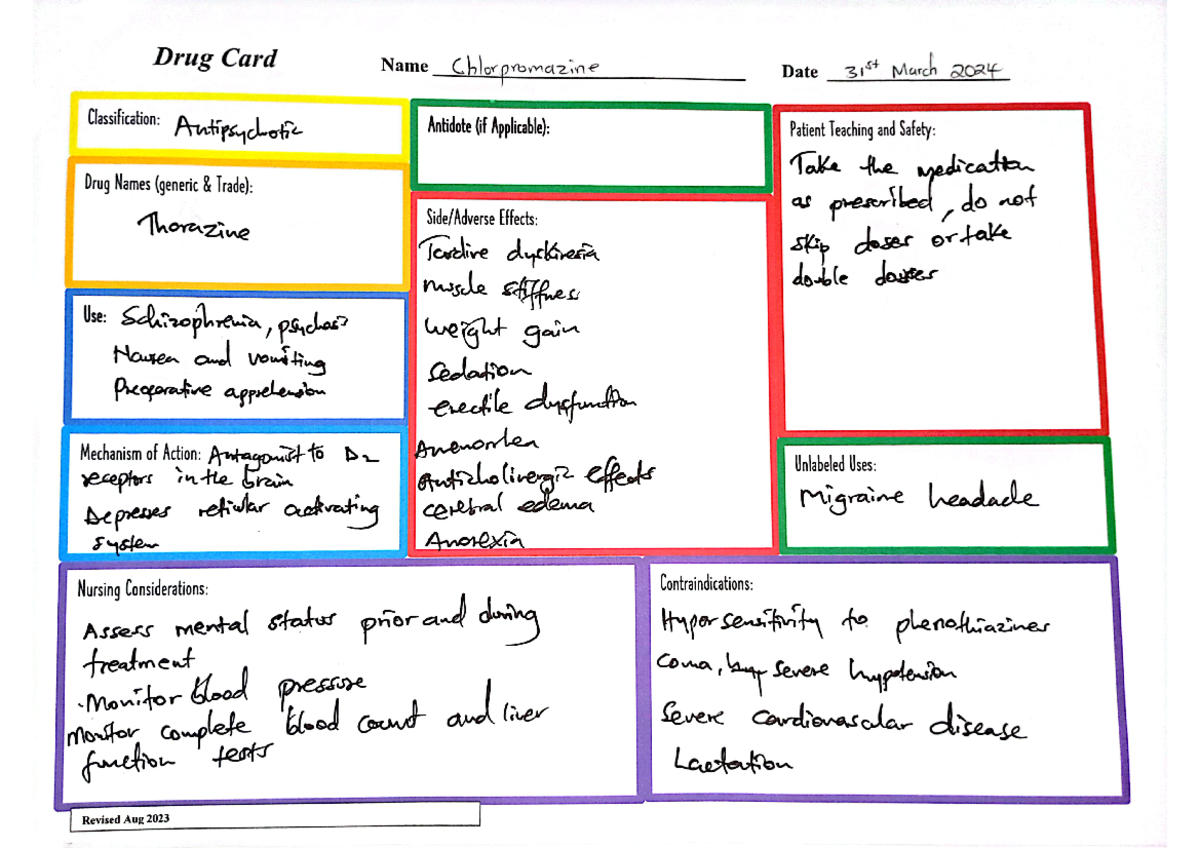 Drug Card
Name Chlorpromazine
Date 31st March 2024
Classification: Antipsychotic
Drug Names (generic & Trade):
Thorazine
Use: Schizophrenia, psychosis
Nausea and vomiting
Preoperative apprehension
Mechanism of Action: Antagonist to D2
receptors in the brain
Depresses reticular activating
system
Antidote (if Applicable):
Side/Adverse Effects:
Tardive dyskinesia
Muscle stiffness
Weight gain
Sedation
erectile dysfunction
Amenorrhea
Anticholinergic effects
cerebral edema
Anorexia
Patient Teaching and Safety:
Take the medication
as prescribed, do not
skip doses or take
double doses
Unlabeled Uses:
Migraine headache
Nursing Considerations:
Assess mental status prior and during
treatment
·Monitor blood pressure
Monitor complete blood count and liver
function tests
Contraindications:
Hypersensitivity to phenothiazines
Coma, severe hypotension
Severe cardiovascular disease
Lactation
Revised Aug 2023